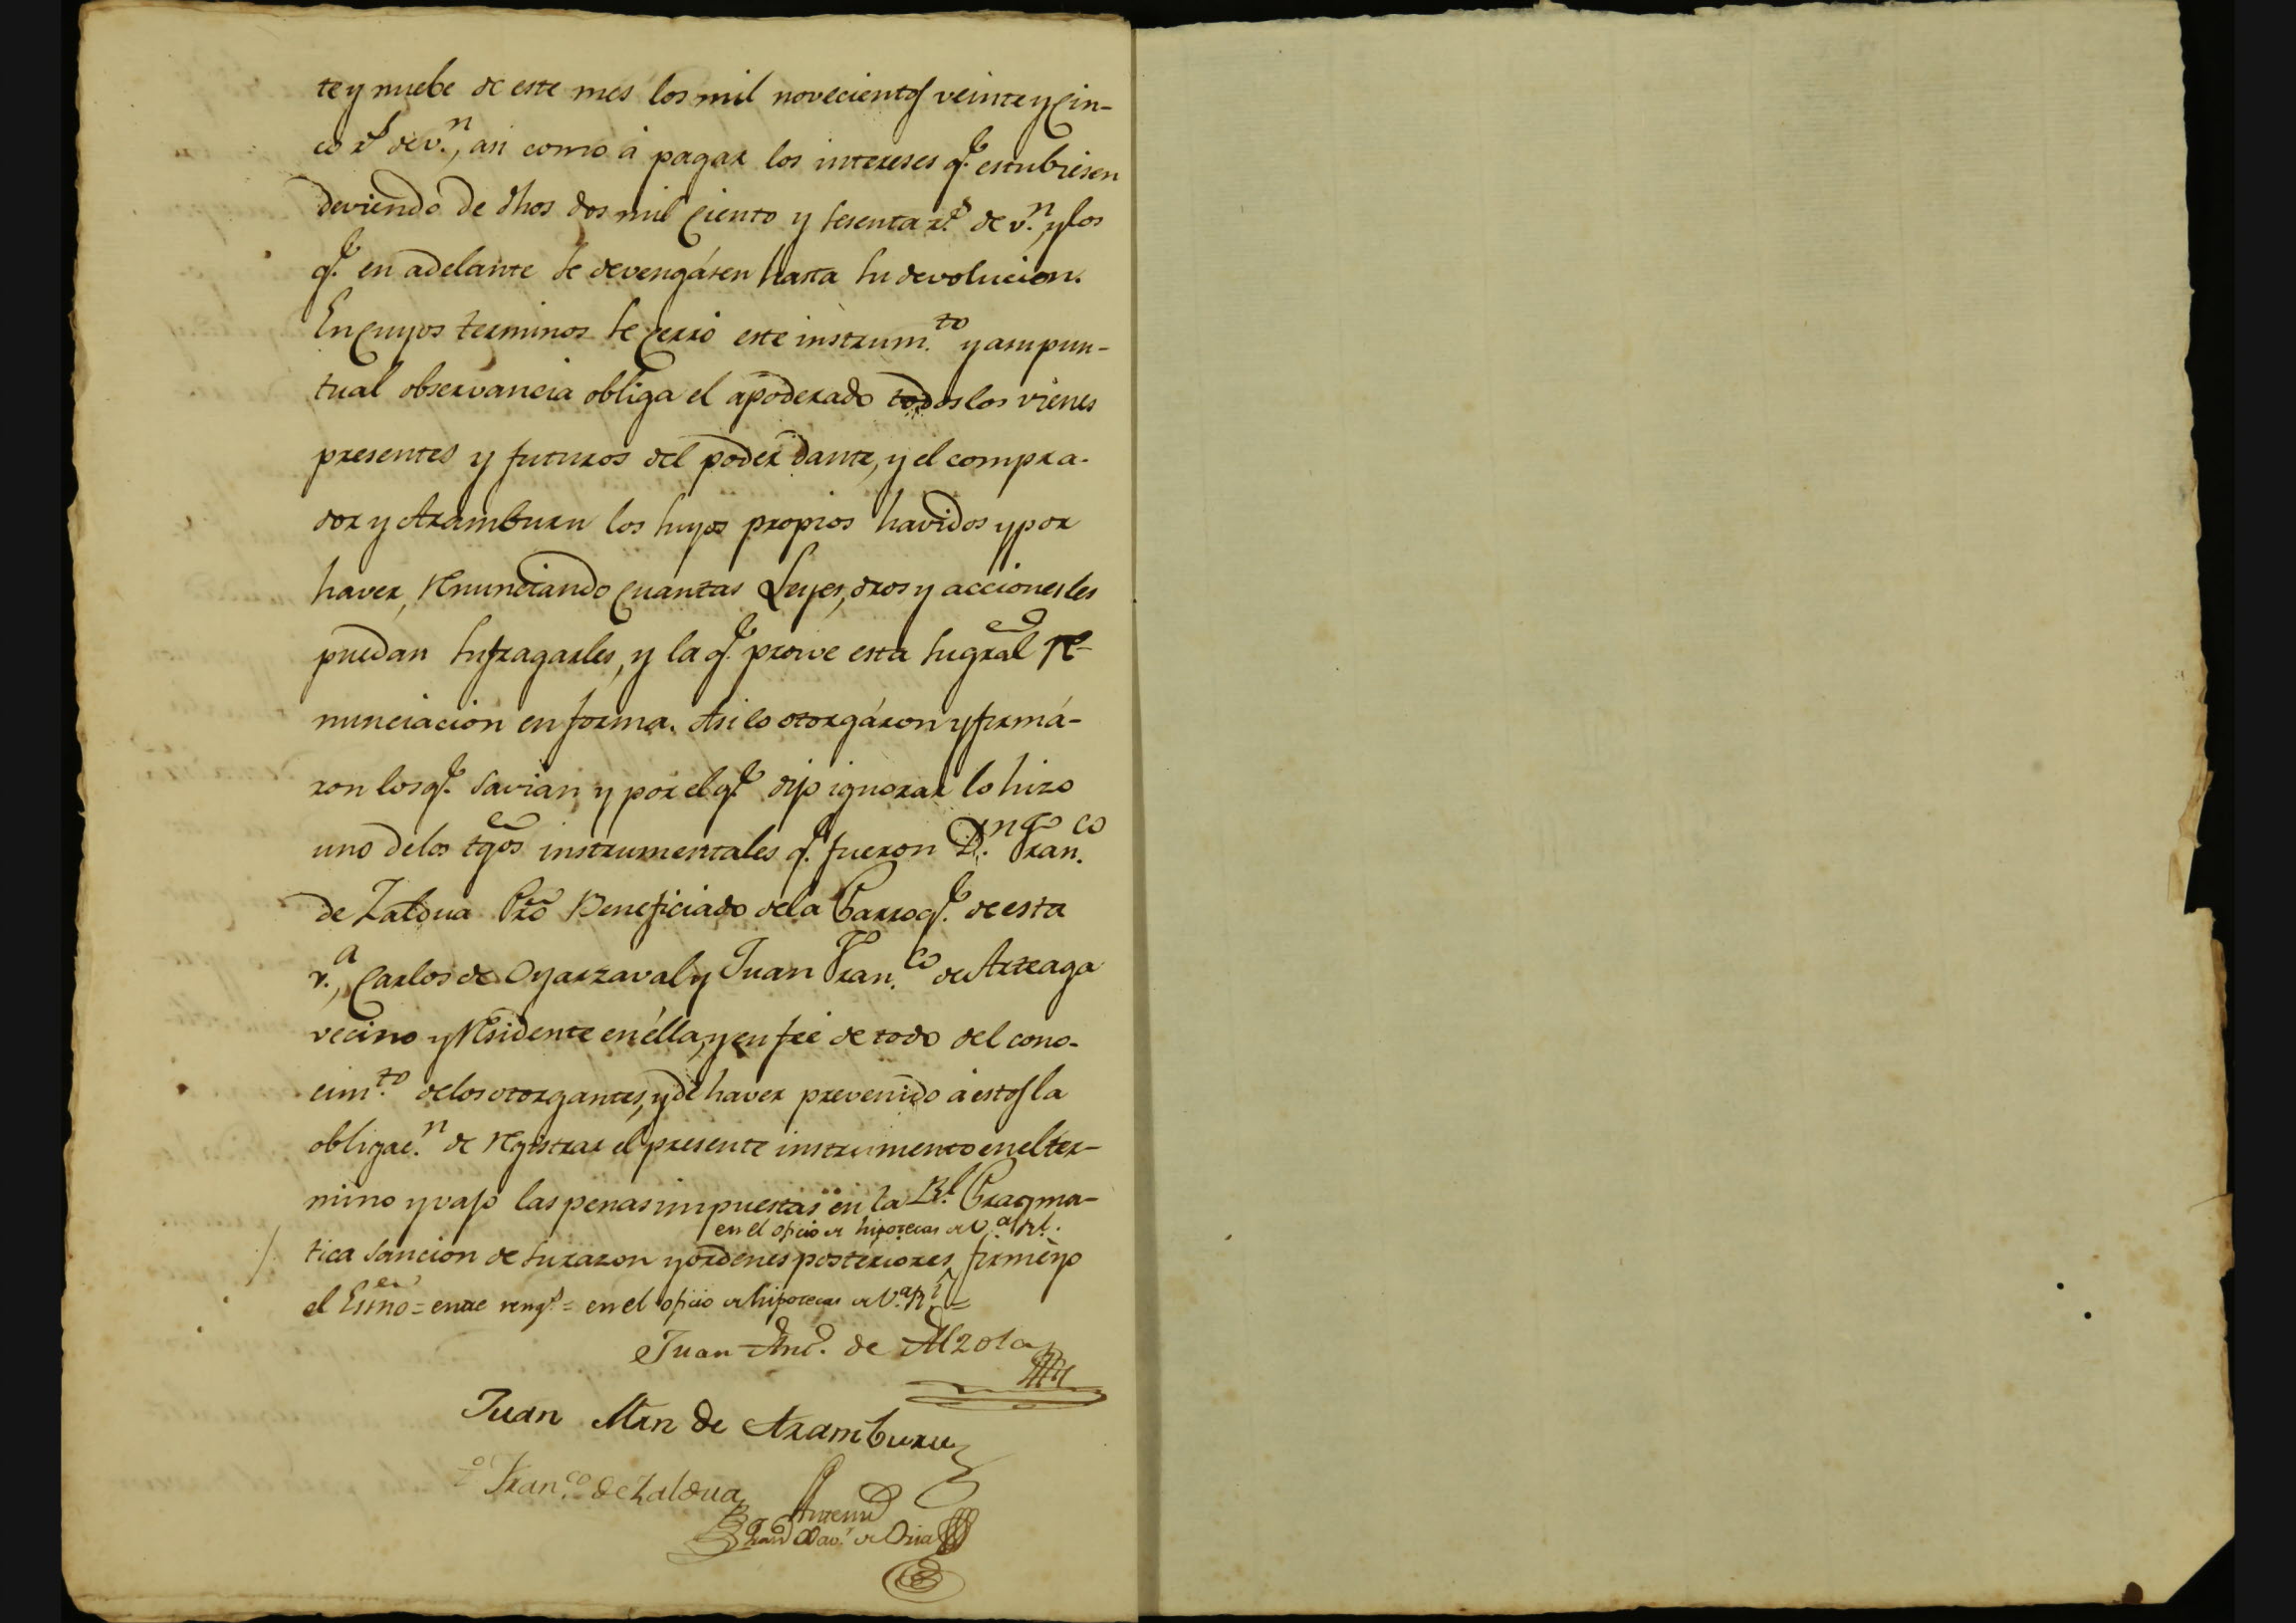 te y nuebe de este mes los mil novecientos veinte y cin-
co r.s de v.n, asi como á pagar los intereses q.e estubiesen
deviendo de dhos dos mil ciento y sesenta r.s de v.n, y los
q.e en adelante se devengásen hasta su devolucion.
En cuyos terminos se cerró este instrum.to y a su pun-
tual observancia obliga el apoderado todos los vienes
presentes y futuros del poder dante, y el compra-
dor y Aramburu los suyos propios havidos y por
haver, renunciando cuantas Leyes, dros y acciones les
puedan sufragarles, y la q.e proive esta su gral re-
nunciacion en forma. Asi lo otorgáron y firmá-
ron los q.e savian y por el q.e dijo ignorar lo hizo
uno de los tgos instrumentales q.e fueron D.n Fran.co
de Zaldua Pro Beneficiado de la Parroq.e de esta
v.a, Carlos de Oyarzaval y Juan Fran.co de Arteaga
vecino y residente en élla, y en fée de todo del cono-
cim.to de los otorgantes, y de haver prevenido á estos la
obligac.n de registrar el presente instrumento en el ter-
mino y vajo las penas impuestas en la R.l Pragma-
en el oficio de hipotecas de V.a R.l
tica Sancion de su razon y ordenes posteriores, firmé yo
el Esno = entre reng.s = en el oficio de hipotecas de V.a R.l =
Juan Ant.o de Alzola
Juan Mrn de Aramburu
Fran.co de Zaldua
Antemi